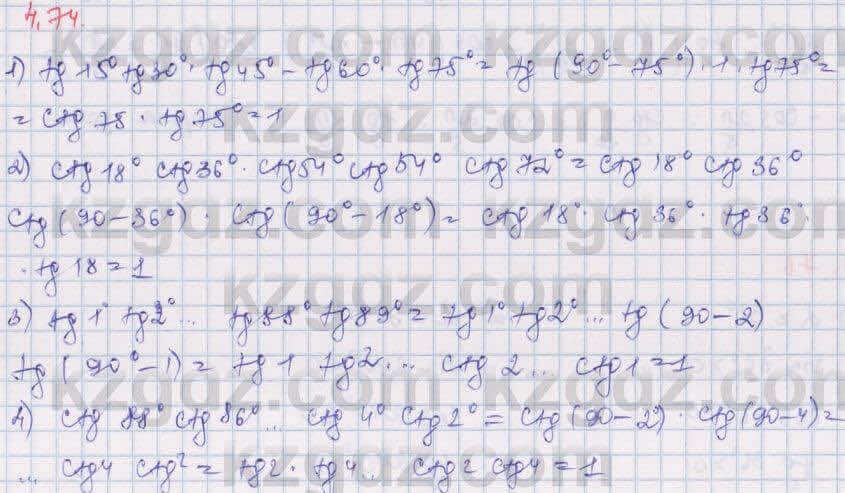 4.74.
1) tg 15° tg 30° · tg 45° - tg 60° · tg 75° = tg (90° - 75°) · 1 · tg 75° =
= ctg 75 · tg 75° = 1
2) ctg 18° ctg 36° · ctg 54° ctg 54° ctg 72° = ctg 18° ctg 36°
ctg (90 - 36°) · ctg (90° - 18°) = ctg 18° · ctg 36° · tg 36° ·
· tg 18 = 1
3) tg 1° tg 2° ... tg 88° tg 89° = tg 1° tg 2° ... tg (90 - 2)
tg (90° - 1) = tg 1 tg 2 ... ctg 2 ... ctg 1 = 1
4) ctg 88° ctg 86° ... ctg 4° ctg 2° = ctg (90 - 2°) · ctg (90 - 4) =
... ctg 4 ctg 2 = tg 2 · tg 4 ... ctg 2 ctg 4 = 1
kzgdz.com